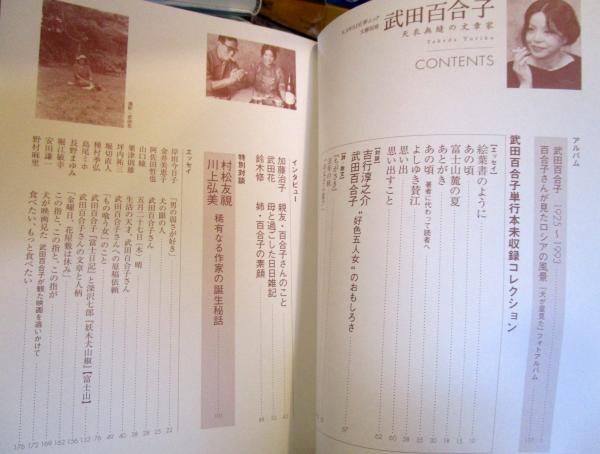 KAWADE夢ムック
文藝別冊
武田百合子
天衣無縫の文章家
Takeda Yuriko
CONTENTS
アルバム
武田百合子 1925〜1993
百合子さんが見たロシアの風景 『犬が星見た』フォトアルバム
武田百合子単行本未収録コレクション
【エッセイ】
絵葉書のように
あの頃
富士山麓の夏
あとがき
あの頃 著者に代わって読者へ
よしゆき賛江
思い出
思い出すこと
【対談】
吉行淳之介
武田百合子 “好色五人女”のおもしろさ
インタビュー
加藤治子 親友・百合子さんのこと
武田花 母と過ごした日日雑記
鈴木修 姉・百合子の素顔
特別対談
村松友視
川上弘美 稀有なる作家の誕生秘話
エッセイ
岸田今日子 「男の弱さが好き」
金井美恵子 犬の眼の人
阿佐田哲也 武田百合子さん
山口瞳 五月二十七日(木)晴
粟津則雄 生活の天才、武田百合子さん
坪内祐三 武田百合子さんへの原稿依頼
堀切直人 「もの喰う女」のこと
種村季弘 武田百合子『富士日記』と深沢七郎『妖木犬山椒』【富士山】
島尾ミホ 武田百合子さんの文章と人柄
長野まゆみ 金曜日、花屋敷は休み
堀江敏幸 この指と、この指と、この指が
安田謙一 犬が映画見た 武田百合子が観た映画を追いかけて
野村麻里 食べたい、もっと食べたい